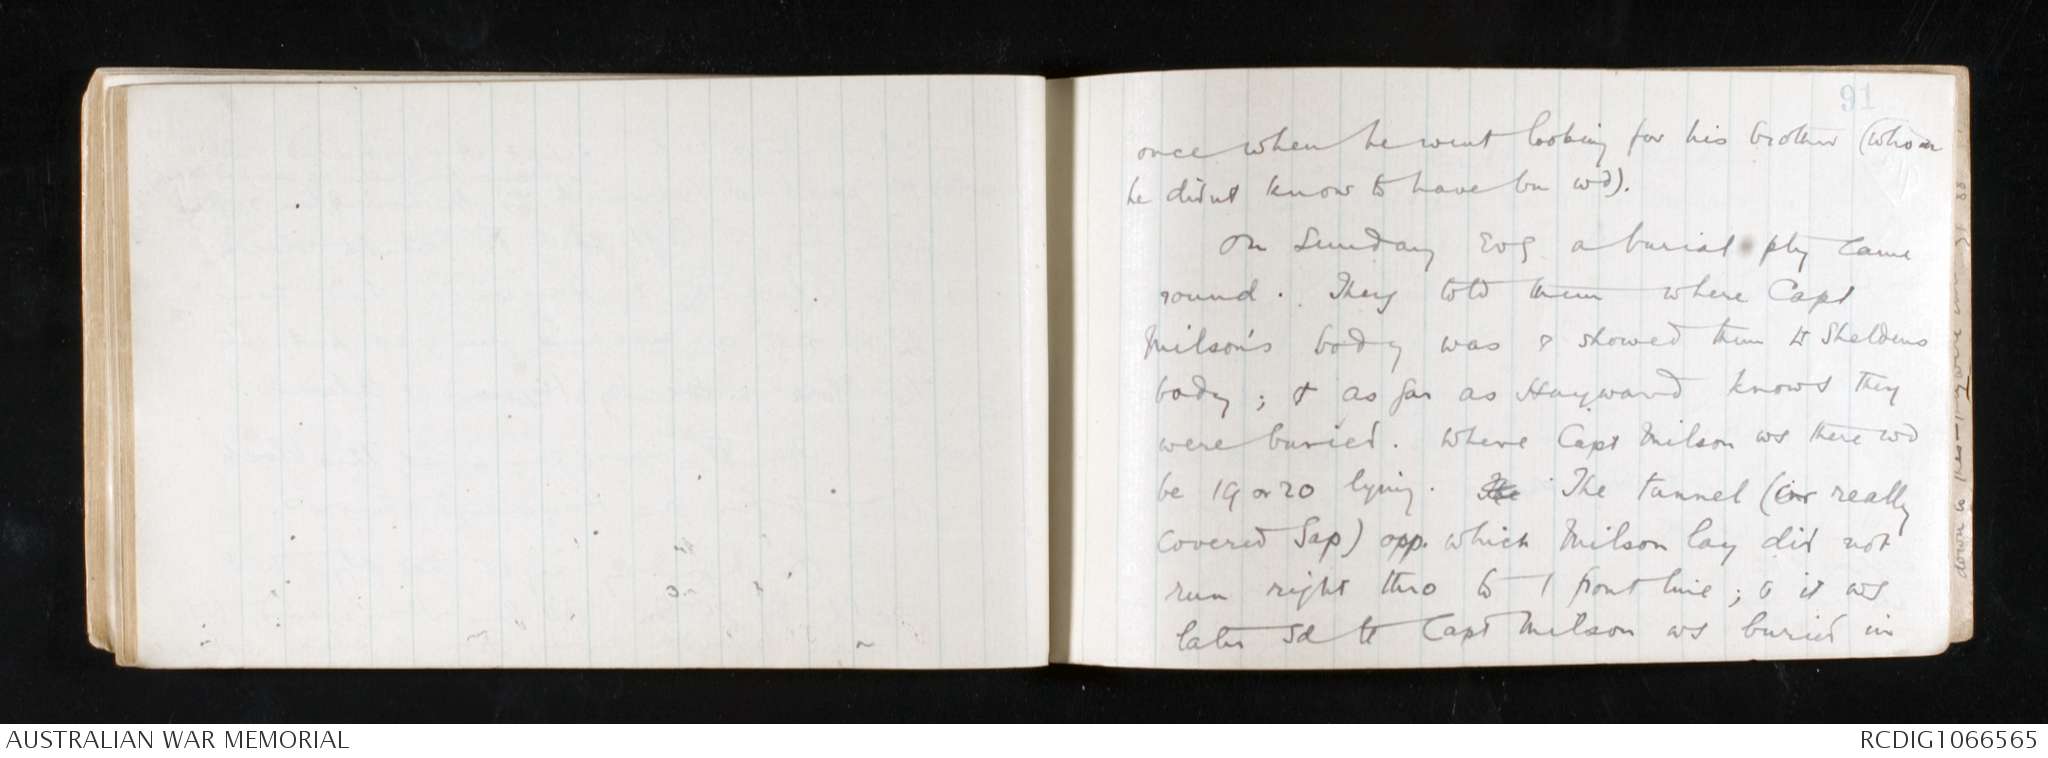 91
once when he went looking for his brother (whom
he didnt know to have bn wd).
On Sunday Evg a burial pty came
round. They told them where Capt
Milson's body was & showed them Lt Sheldons
body; & as far as Hayward knows they
were buried. Where Capt Milson ws there wd
be 19 or 20 lying. The The tunnel (or really
covered Sap) opp. which Milson lay did not
run right thro to / front line; & it ws
later sd tt Capt Milson ws buried in
down in
88
AUSTRALIAN WAR MEMORIAL
RCDIG1066565